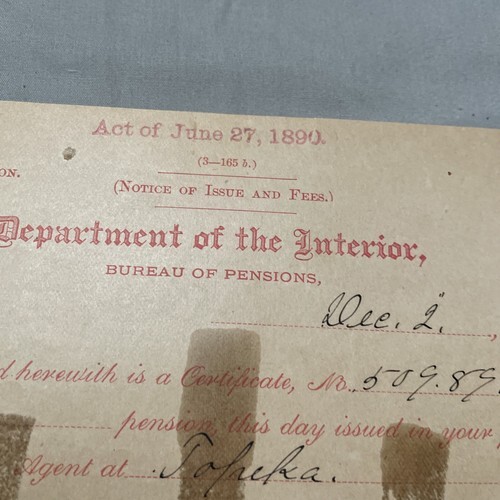 Act of June 27, 1890.
(3—165 b.)
ON.
(NOTICE OF ISSUE AND FEES.)
Department of the Interior,
BUREAU OF PENSIONS,
Dec. 2.,
d herewith is a Certificate, No. 509.89
pension, this day issued in your
Agent at Topeka.